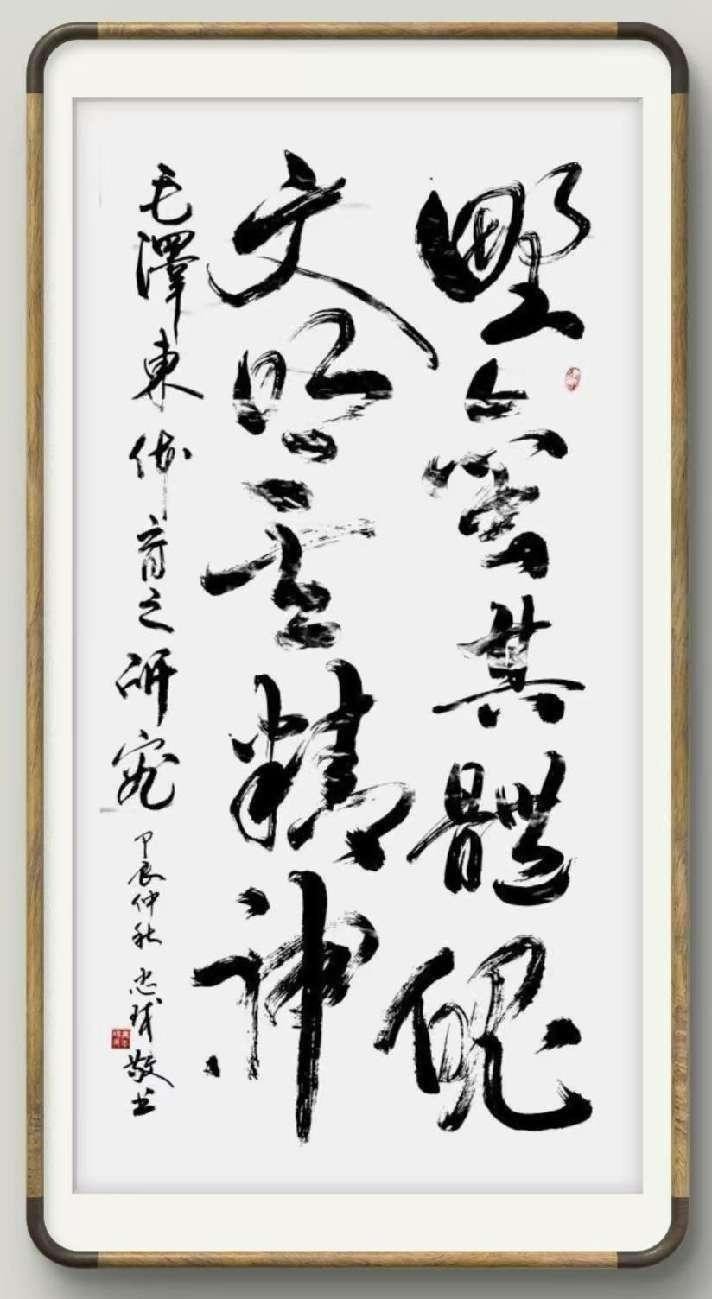 野蠻其體魄
文明其精神
毛澤東体育之研究
甲辰仲秋 忠 敬书